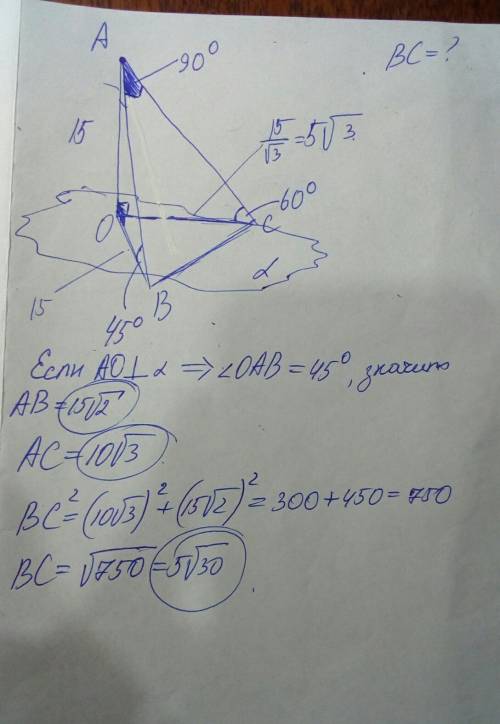 A
90°
BC = ?
15
15/√3 = 5√3
60°
O
C
α
15
B
45°
Если AO⊥α ⟹ ∠OAB = 45°, значит
AB = 15√2
AC = 10√3
BC² = (10√3)² + (15√2)² = 300 + 450 = 750
BC = √750 = 5√30.